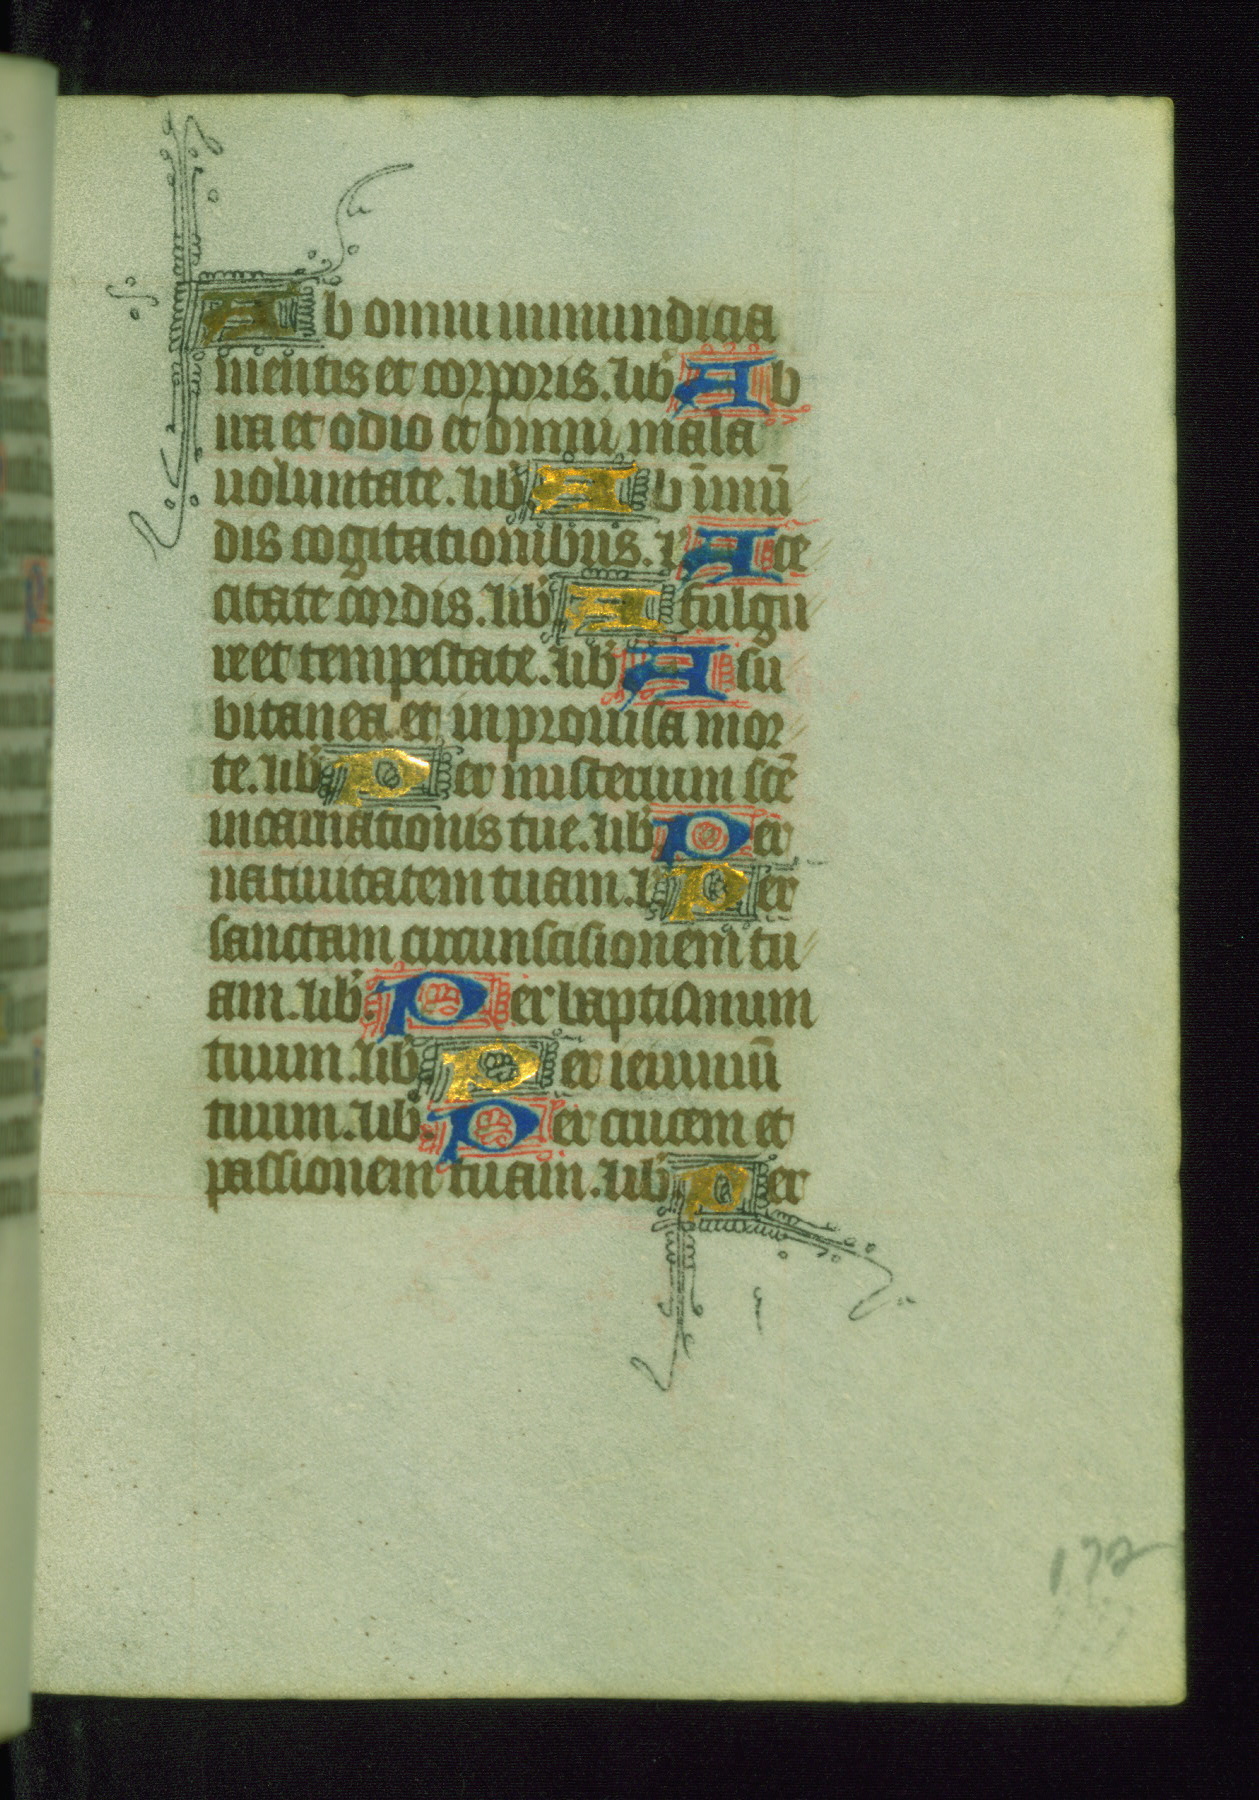 Ab omni inmundicia
mentis et corporis. lib' Ab
ira et odio et omni mala
uoluntate. lib' Ab īmū
dis cogitationibus. l' A ce
citate cordis. lib' A fulgu
re et tempestate. lib' A su
bitanea et inprouisa mor
te. lib' Per misterium scē
incarnationis tue. lib' Per
natiuitatem tuam. l' Per
sanctam circunscisionem tu
am. lib' Per baptismum
tuum. lib' Per ieiuniū
tuum. lib' Per crucem et
passionem tuam. lib' Per
172